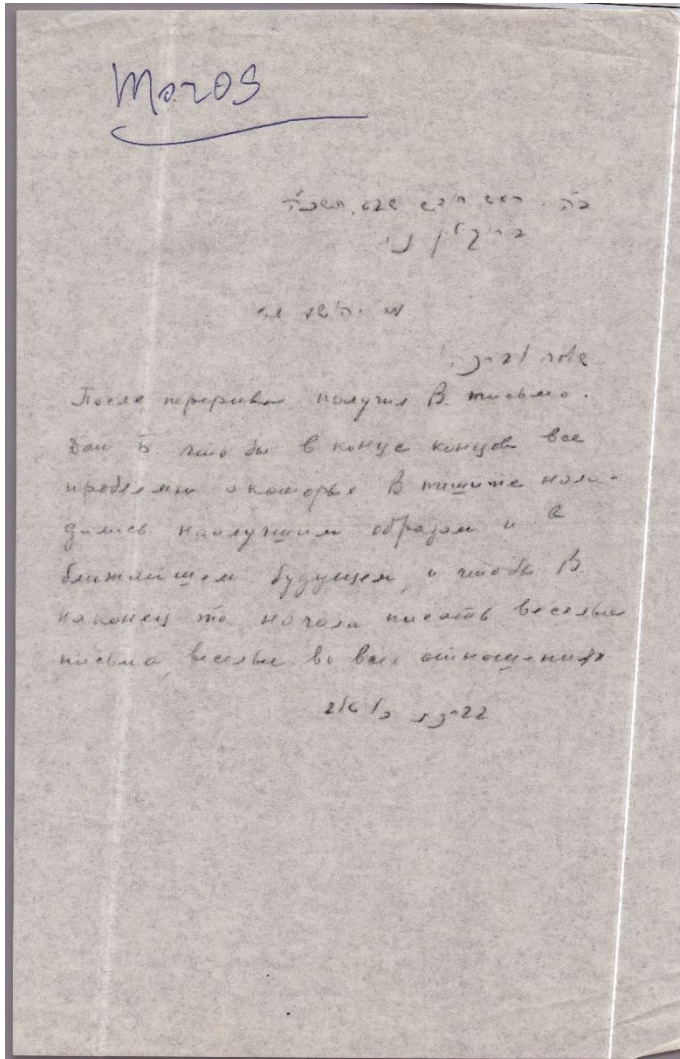 Moros
ב"ה. ראש חדש שבט, תשכ"ה
ברוקלין ני.
שלום וברכה!
После перерыва получил В. письмо.
Дай Б что бы в конце концов все
проблемы о которых В пишите нала-
дились наилучшим образом и в
ближайшем будущем, и чтобы В.
наконец то начали писать веселые
письма, веселые во всех отношениях
בברכה